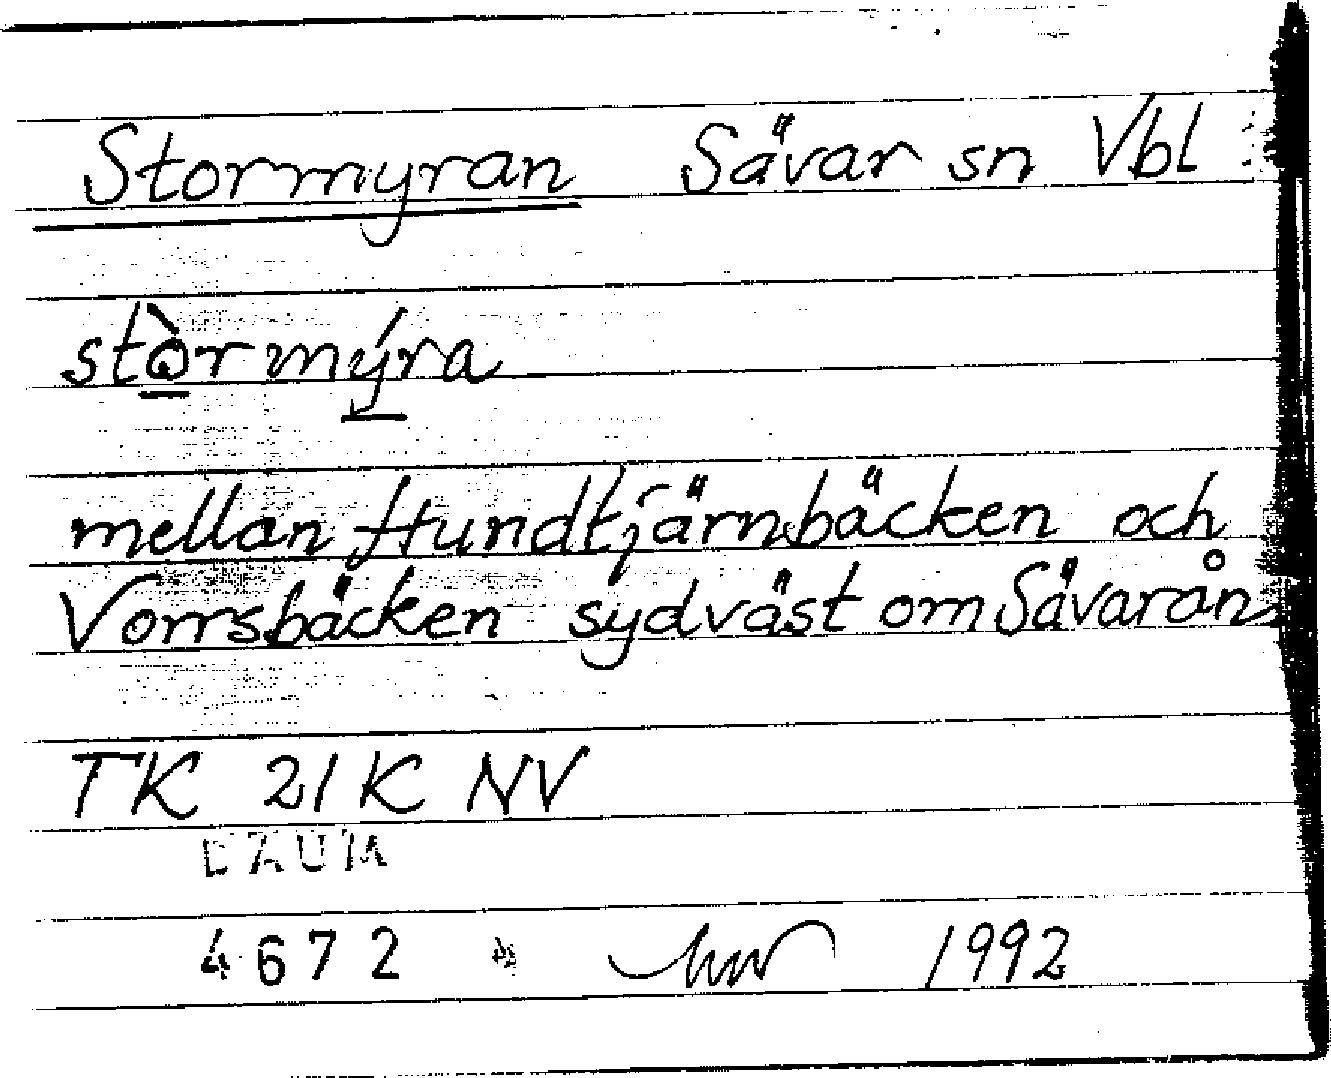 Stormyran Sävar sn Vbl
stòrmýra
mellan Hundtjärnbäcken och
Vorrsbäcken sydväst om Sävarån
TK 21K NV
DAUM
4672 1992